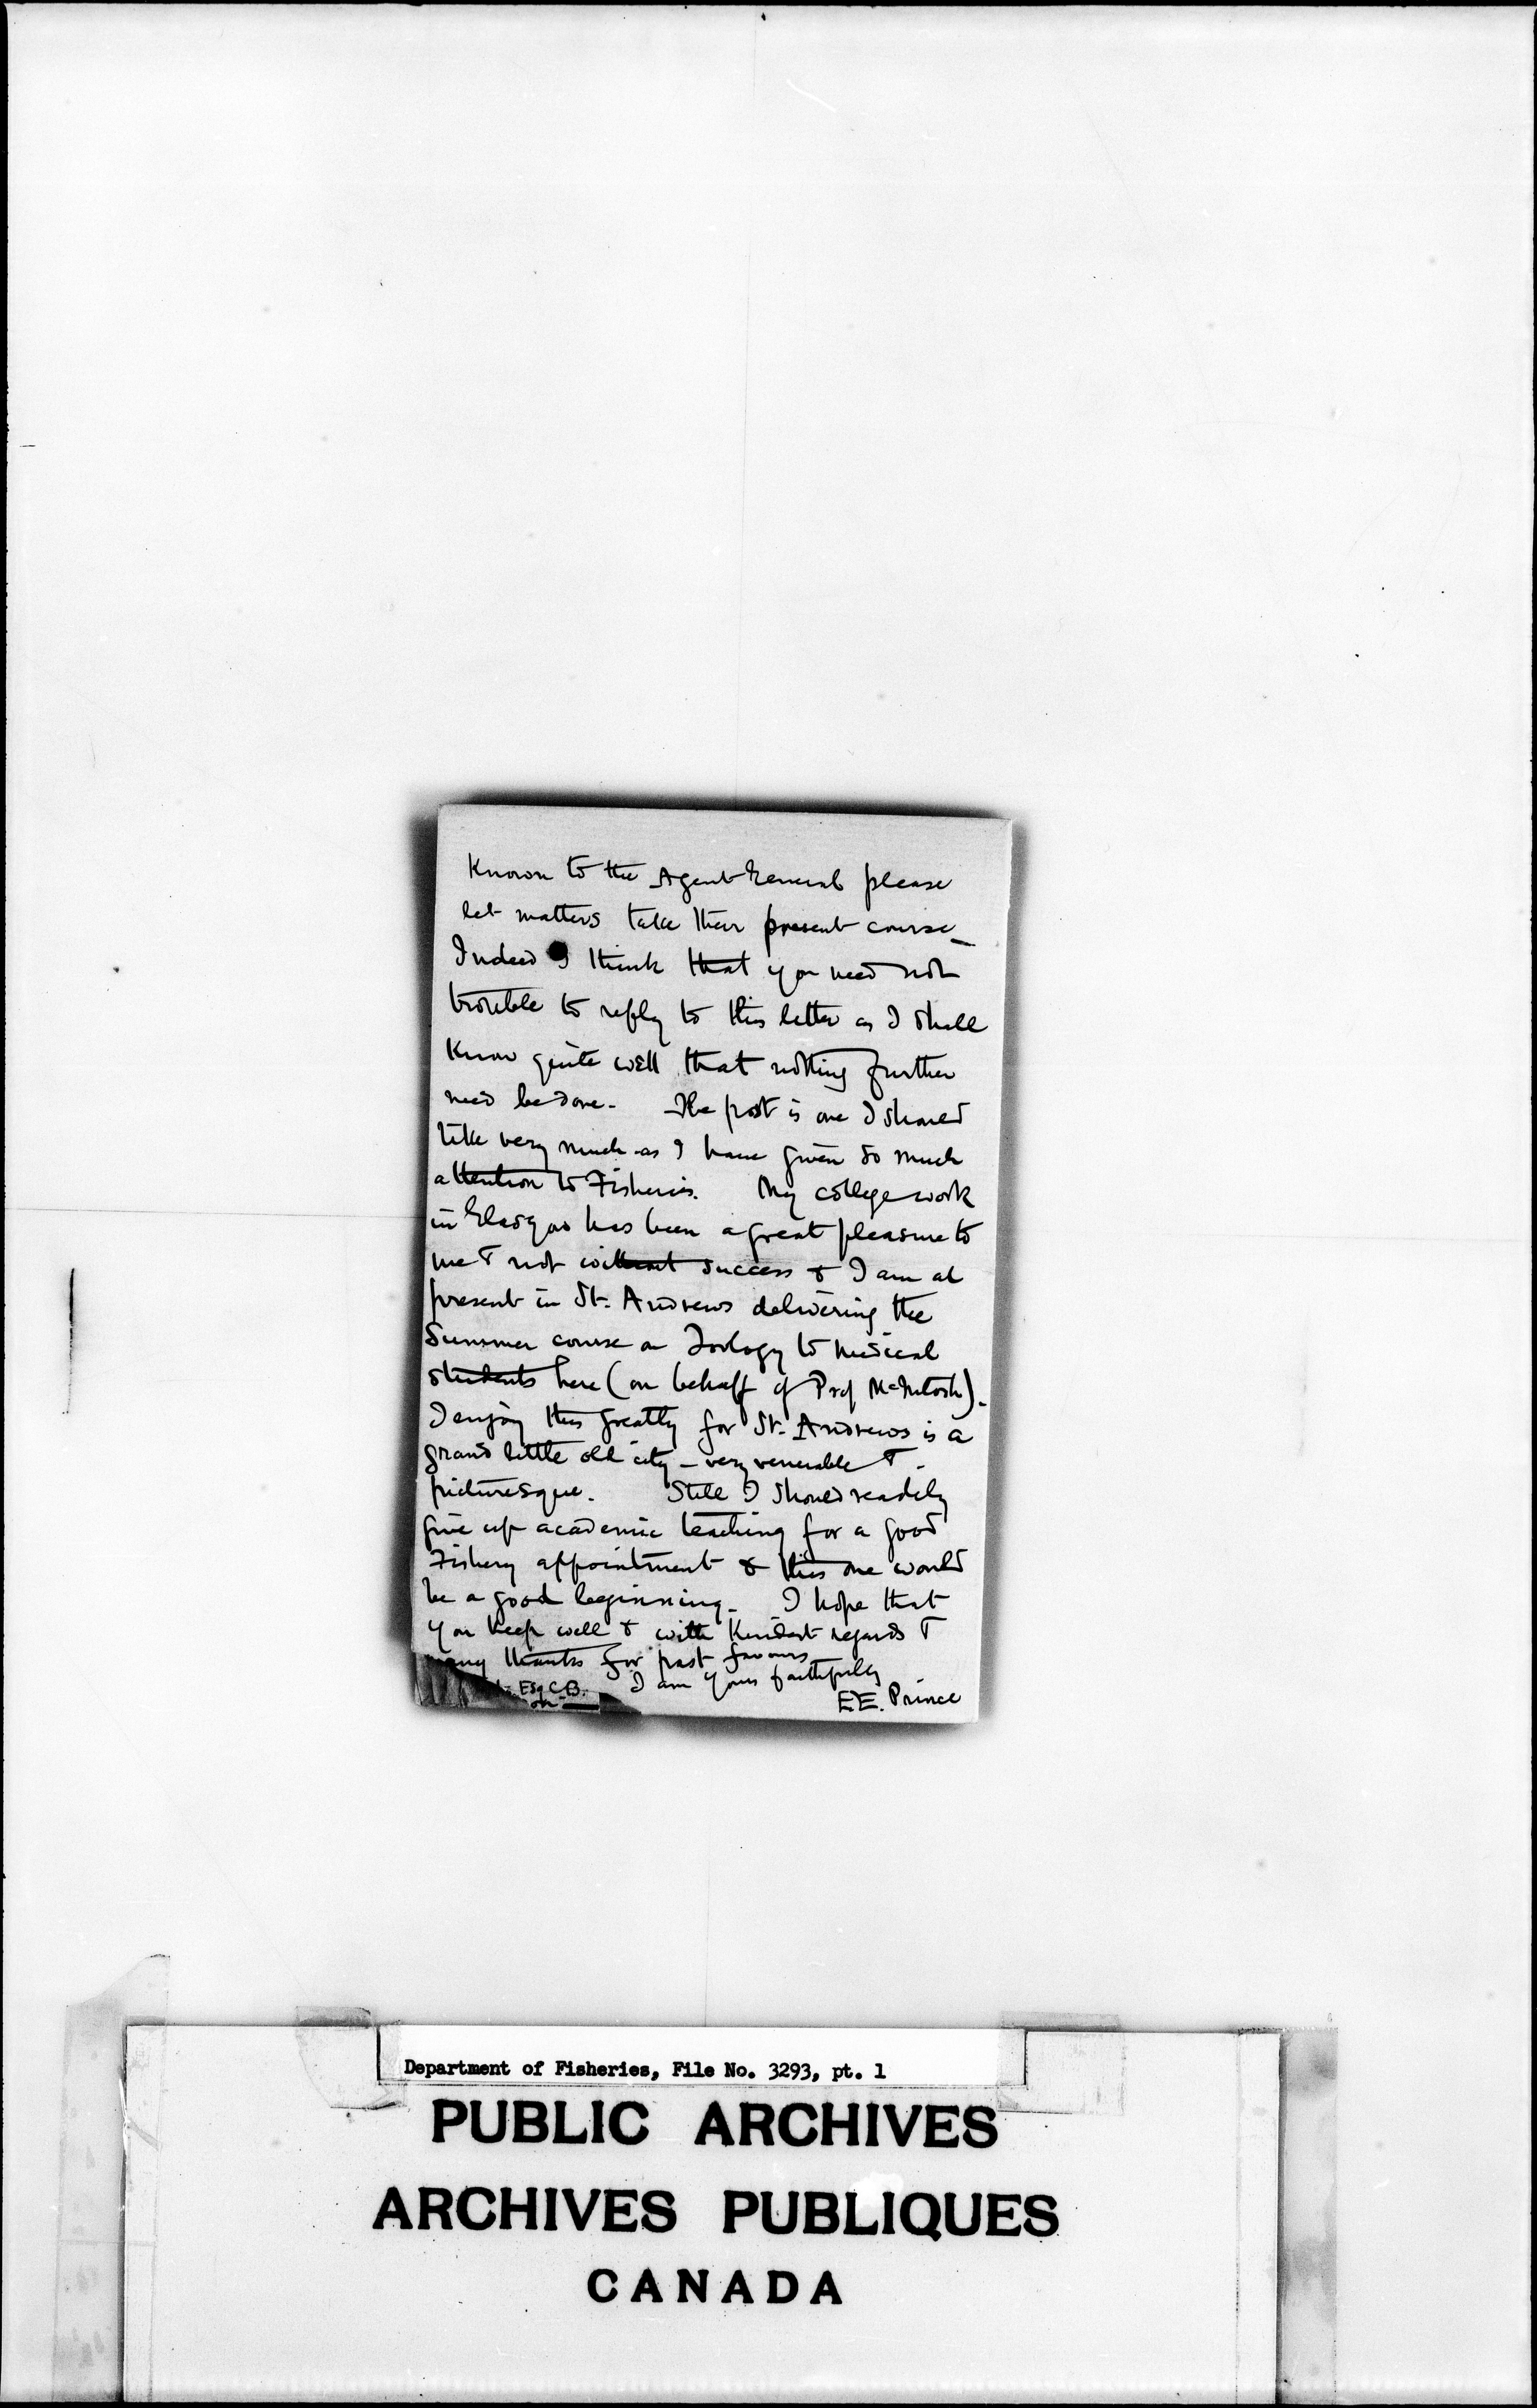 Known to the Agent General please
let matters take their present course_
Indeed I think that you need not
trouble to reply to this letter as I shall
know quite well that nothing further
need be done. The post is one I should
like very much as I have given so much
attention to Fisheries. My college work
in Glasgow has been a great pleasure to
me & not without success & I am at
present in St. Andrews delivering the
Summer course on Zoology to Medical
students here (on behalf of Prof McIntosh).
I enjoy this greatly for St. Andrews is a
grand little old city – very venerable &
picturesque. Still I should readily
give up academic teaching for a good
Fishery appointment & this one would
be a good beginning. I hope that
you keep well & with kindest regards &
many thanks for past favours
I am yours faithfully
Esq C.B.
E.E. Prince
Department of Fisheries, File No. 3293, pt. 1
PUBLIC ARCHIVES
ARCHIVES PUBLIQUES
CANADA